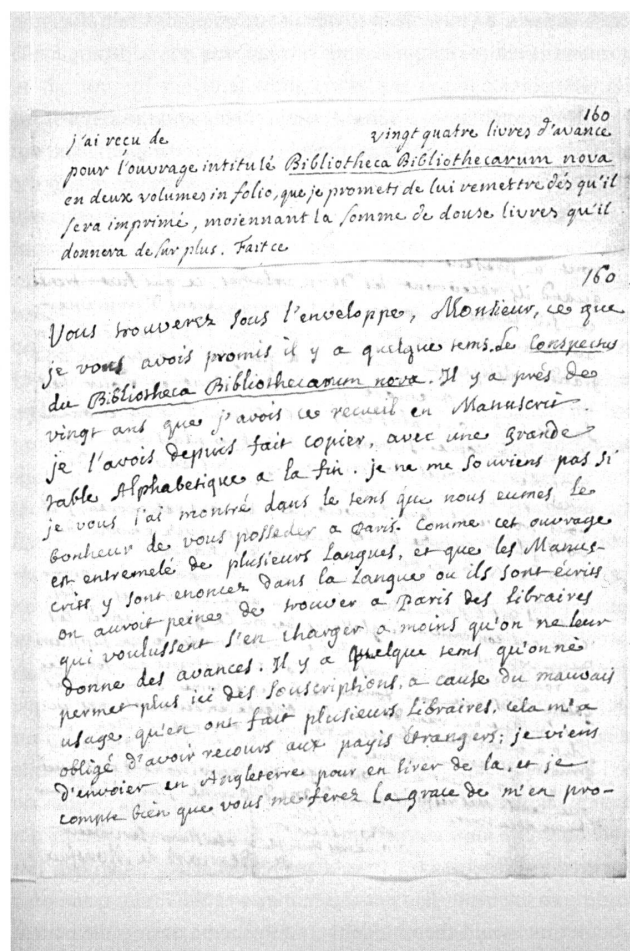 160
j'ai reçu de vingt quatre livres d'avance
pour l'ouvrage intitulé Bibliotheca Bibliothecarum nova
en deux volumes in folio, que je promets de lui remettre dés qu'il
sera imprimé, moiennant la somme de douse livres qu'il
donnera de surplus. Fait ce
160
Vous trouverez sous l'enveloppe, Monsieur, ce que
je vous avois promis il y a quelque tems. Le Conspectus
du Bibliotheca Bibliothecarum nova. Il y a prés de
vingt ans que j'avois ce recueil en Manuscrit.
je l'avois depuis fait copier, avec une grande
table Alphabetique a la fin. je ne me souviens pas si
je vous l'ai montré dans le tems que nous eumes le
bonheur de vous posseder a Paris. Comme cet ouvrage
est entremelé de plusieurs Langues, et que les Manus-
crits y sont enoncez dans la Langue ou ils sont écrits
on auroit peine de trouver a Paris des Libraires
qui voulussent s'en charger a moins qu'on ne leur
donne des avances. Il y a quelque tems qu'on ne
permet plus ici des souscriptions, a cause du mauvais
usage qu'en ont fait plusieurs Libraires. Cela m'a
obligé d'avoir recours aux payis étrangers; je viens
d'envoier en Angleterre pour en tirer de la. et je
compte bien que vous me ferez la grace de m'en pro-